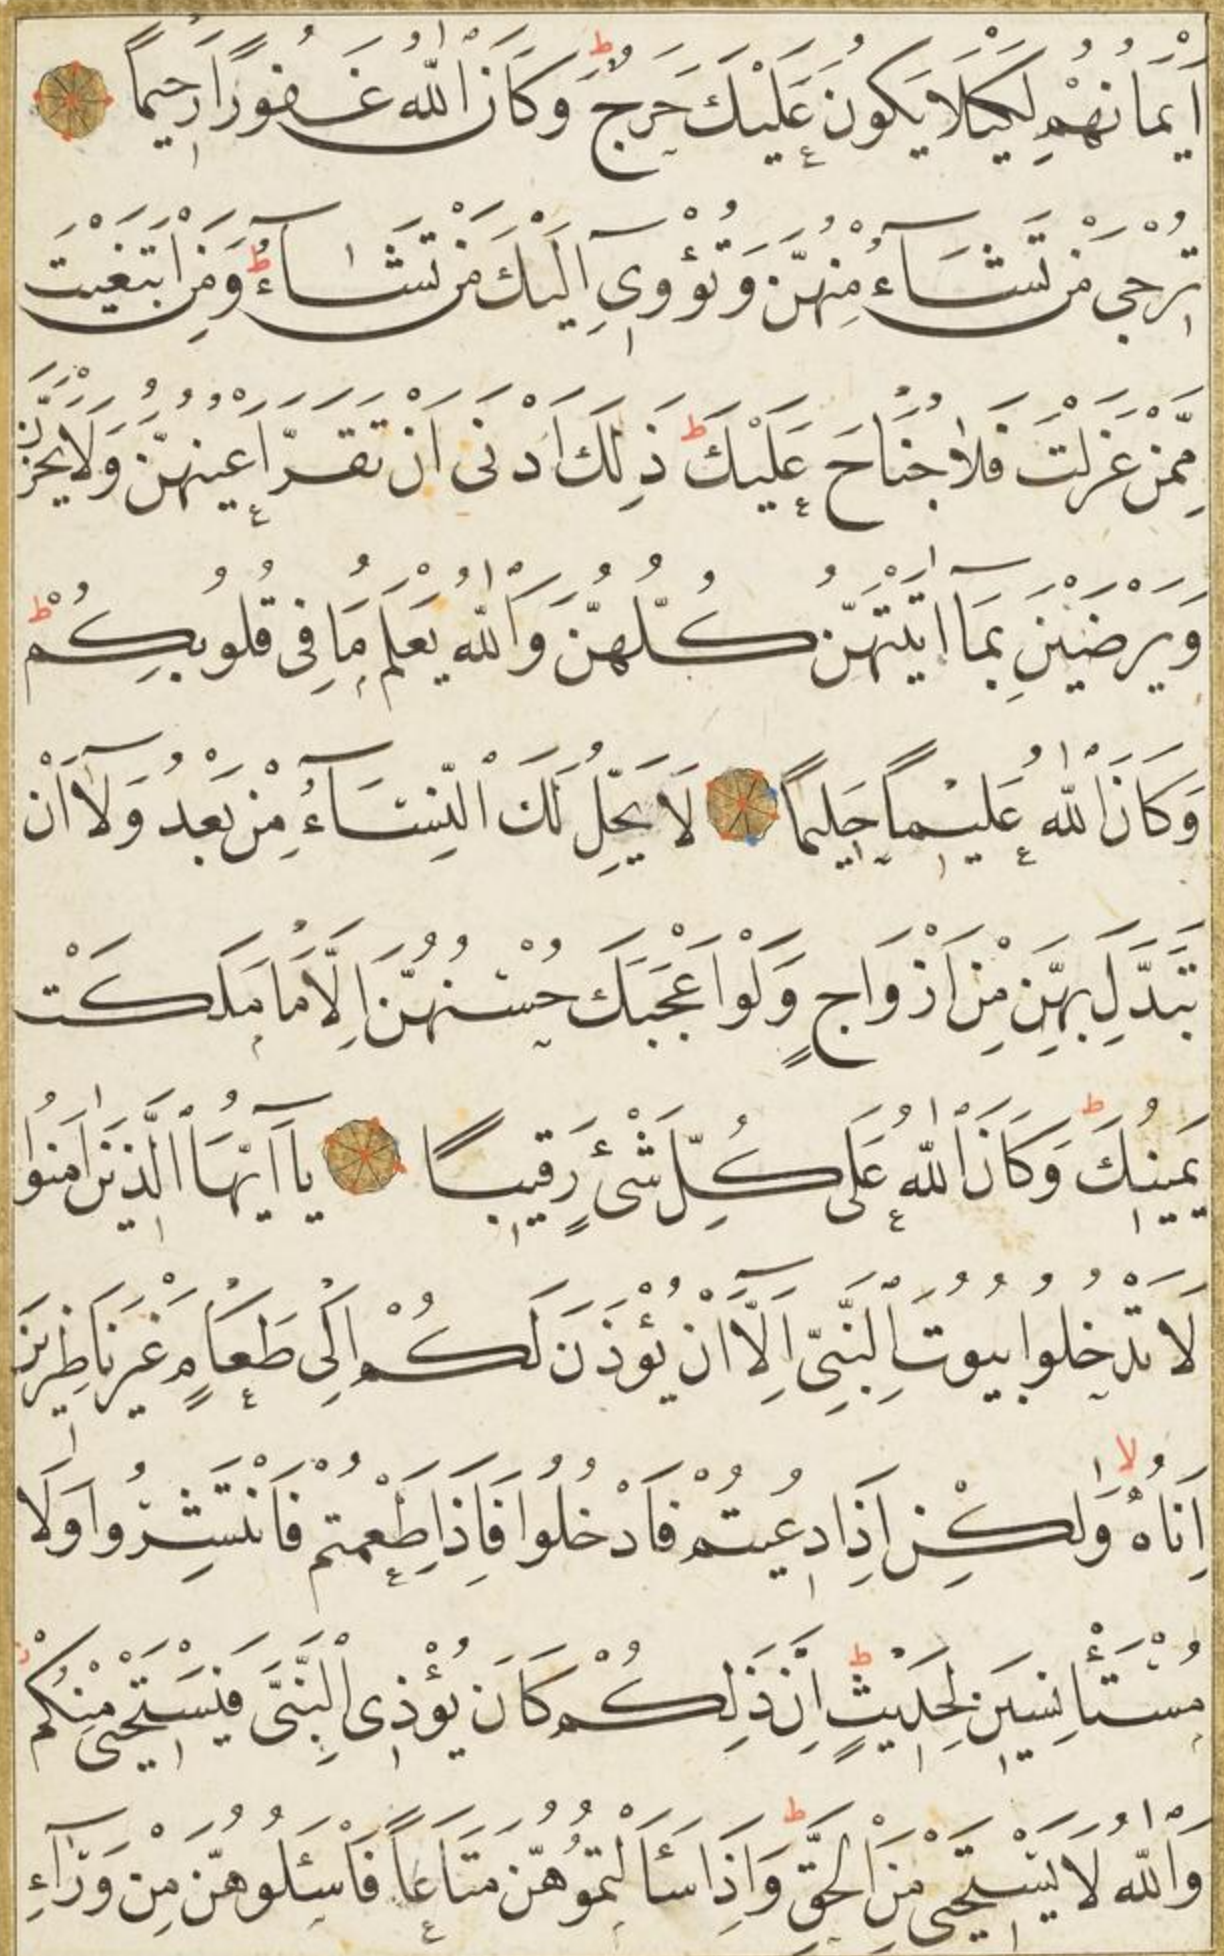 اَيْمَانُهُمْ لِكَيْلَا يَكُونَ عَلَيْكَ حَرَجٌ ط وَكَانَ اللّٰهُ غَفُورًا رَحِيمًا
تُرْجِى مَنْ تَشَٓاءُ مِنْهُنَّ وَتُؤْوِٓى اِلَيْكَ مَنْ تَشَٓاءُ ط وَمَنِ ابْتَغَيْتَ
مِمَّنْ عَزَلْتَ فَلَا جُنَاحَ عَلَيْكَ ط ذٰلِكَ اَدْنٰى اَنْ تَقَرَّ اَعْيُنُهُنَّ وَلَا يَحْزَنَّ
وَيَرْضَيْنَ بِمَٓا اٰتَيْتَهُنَّ كُلُّهُنَّ وَاللّٰهُ يَعْلَمُ مَا فِى قُلُوبِكُمْ ط
وَكَانَ اللّٰهُ عَلِيمًا حَلِيمًا لَا يَحِلُّ لَكَ النِّسَٓاءُ مِنْ بَعْدُ وَلَٓا اَنْ
تَبَدَّلَ بِهِنَّ مِنْ اَزْوَاجٍ وَلَوْ اَعْجَبَكَ حُسْنُهُنَّ اِلَّا مَا مَلَكَتْ
يَمِينُكَ ط وَكَانَ اللّٰهُ عَلٰى كُلِّ شَىْءٍ رَقِيبًا يَٓا اَيُّهَا الَّذِينَ اٰمَنُوا
لَا تَدْخُلُوا بُيُوتَ النَّبِىِّ اِلَّٓا اَنْ يُؤْذَنَ لَكُمْ اِلٰى طَعَامٍ غَيْرَ نَاظِرِينَ
اِنَاهُ لا وَلٰكِنْ اِذَا دُعِيتُمْ فَادْخُلُوا فَاِذَا طَعِمْتُمْ فَانْتَشِرُوا وَلَا
مُسْتَأْنِسِينَ لِحَدِيثٍ ط اِنَّ ذٰلِكُمْ كَانَ يُؤْذِى النَّبِىَّ فَيَسْتَحْيِى مِنْكُمْ
وَاللّٰهُ لَا يَسْتَحْيِى مِنَ الْحَقِّ ط وَاِذَا سَأَلْتُمُوهُنَّ مَتَاعًا فَاسْئَلُوهُنَّ مِنْ وَرَٓاءِ